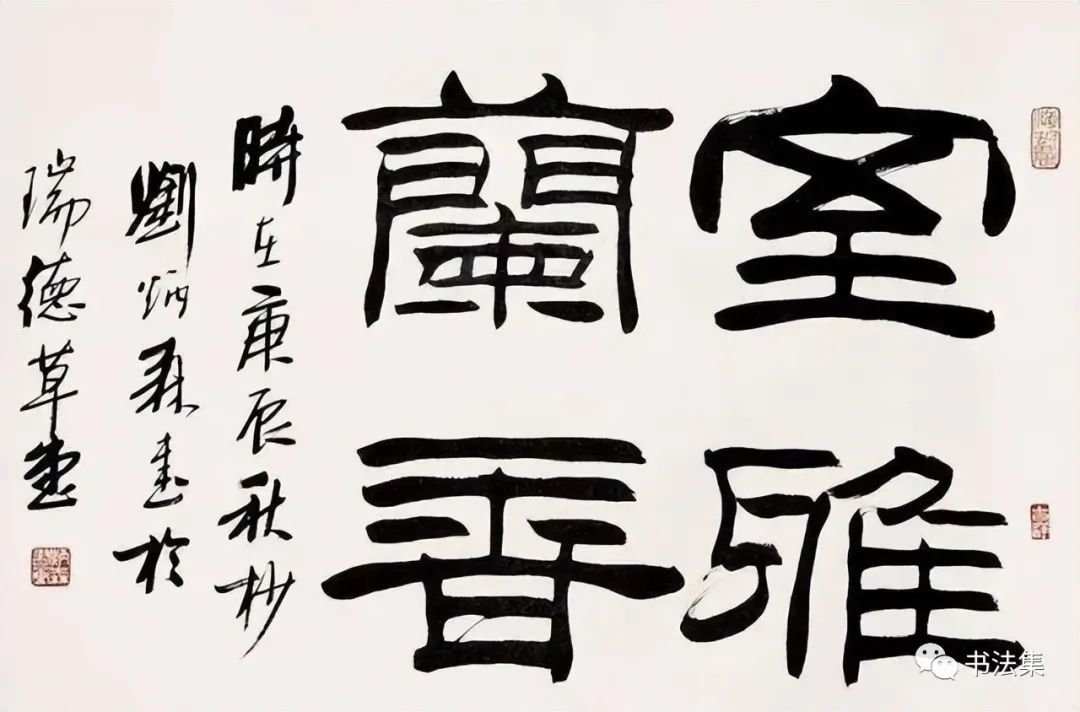 室雅
蘭香
時在庚辰秋杪
劉炳森書於
瑞德草堂
书法集